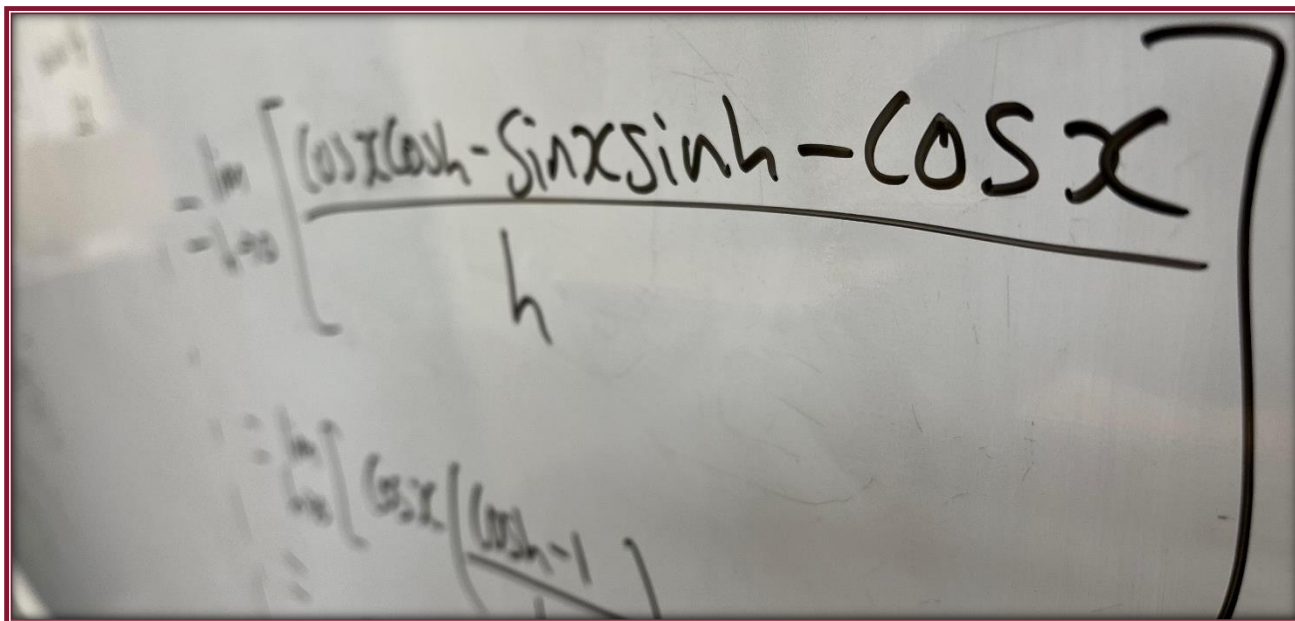 = lim h→0 [ cosx cosh - sinx sinh - cosx ]
h
= lim h→0 [ cosx ( cosh - 1 )